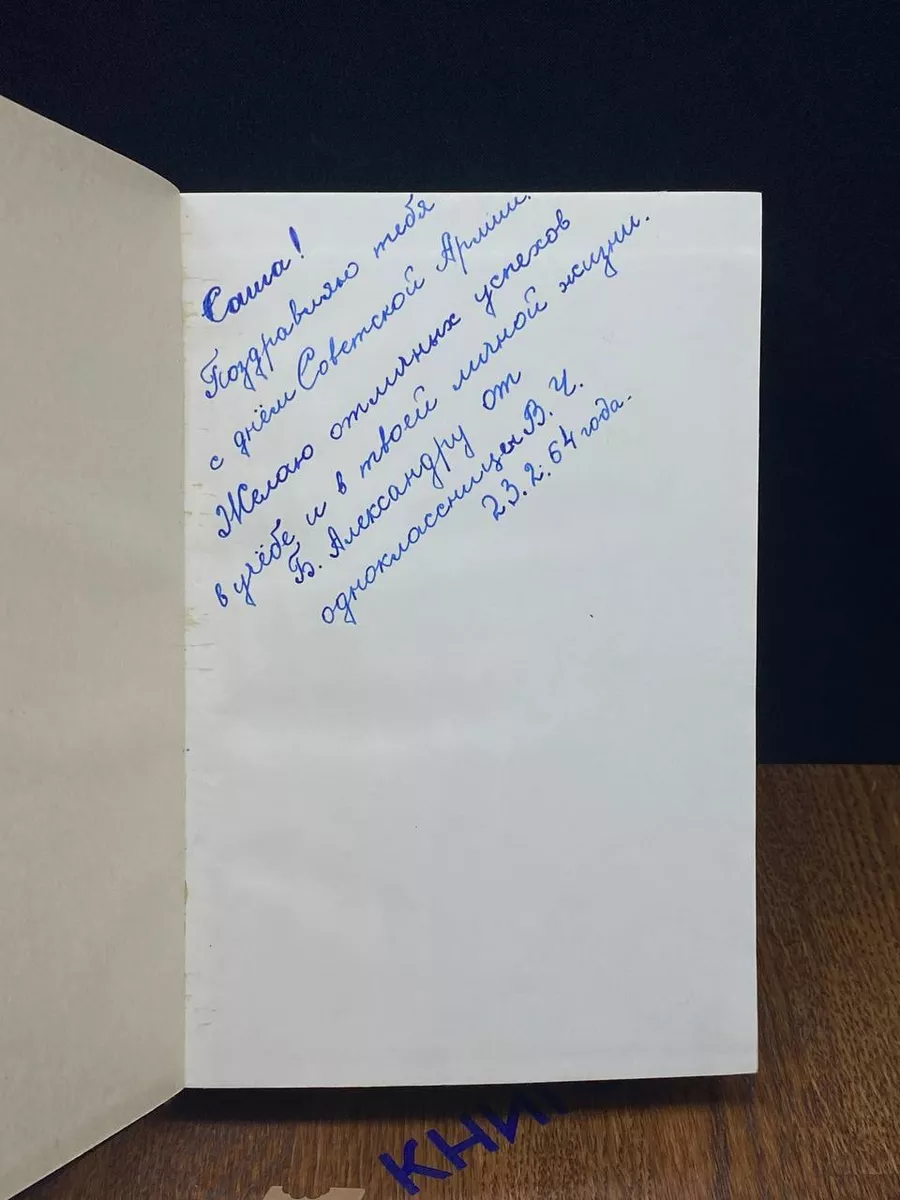 Саша!
Поздравляю тебя
с днём Советской Армии.
Желаю отличных успехов
в учёбе и в твоей личной жизни.
Б. Александру от
одноклассницы В. Ч.
23.2.64 года.
КНИ